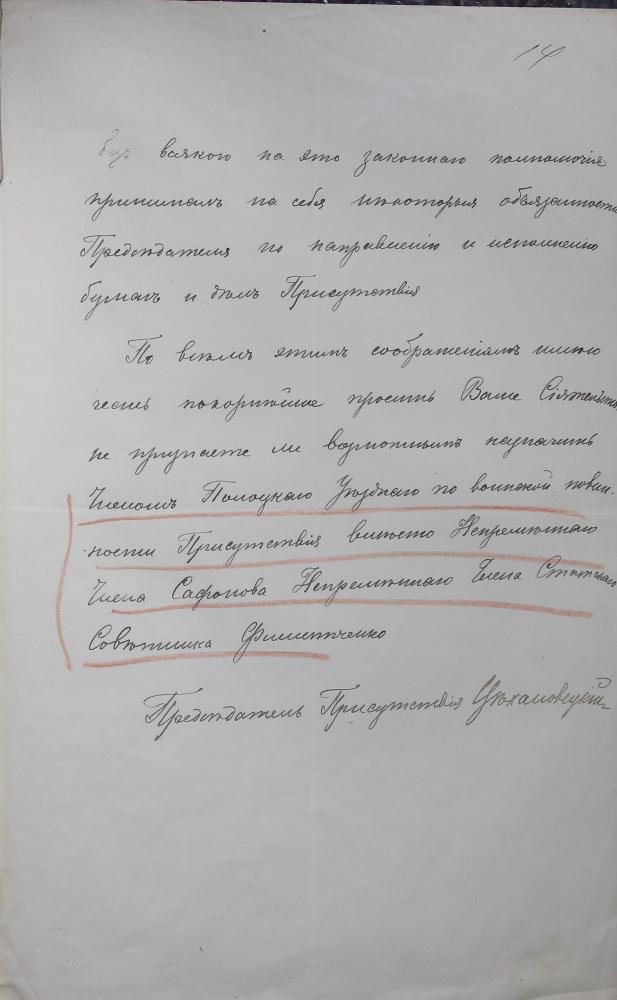 14
безъ всякого на это законнаго полномочія
принималъ на себя нѣкоторыя обязанности
Предсѣдателя по направленію и исполненію
бумагъ и дѣлъ Присутствія
По всѣмъ этимъ соображеніямъ имѣю
честь покорнѣйше просить Ваше Сіятельство
не признаете ли возможнымъ назначить
Членомъ Полоцкаго Уѣзднаго по воинской повин-
ности Присутствія вмѣсто Непремѣннаго
Члена Сафонова Непремѣннаго Члена Статскаго
Совѣтника
Предсѣдатель Присутствія Цѣхановецкій